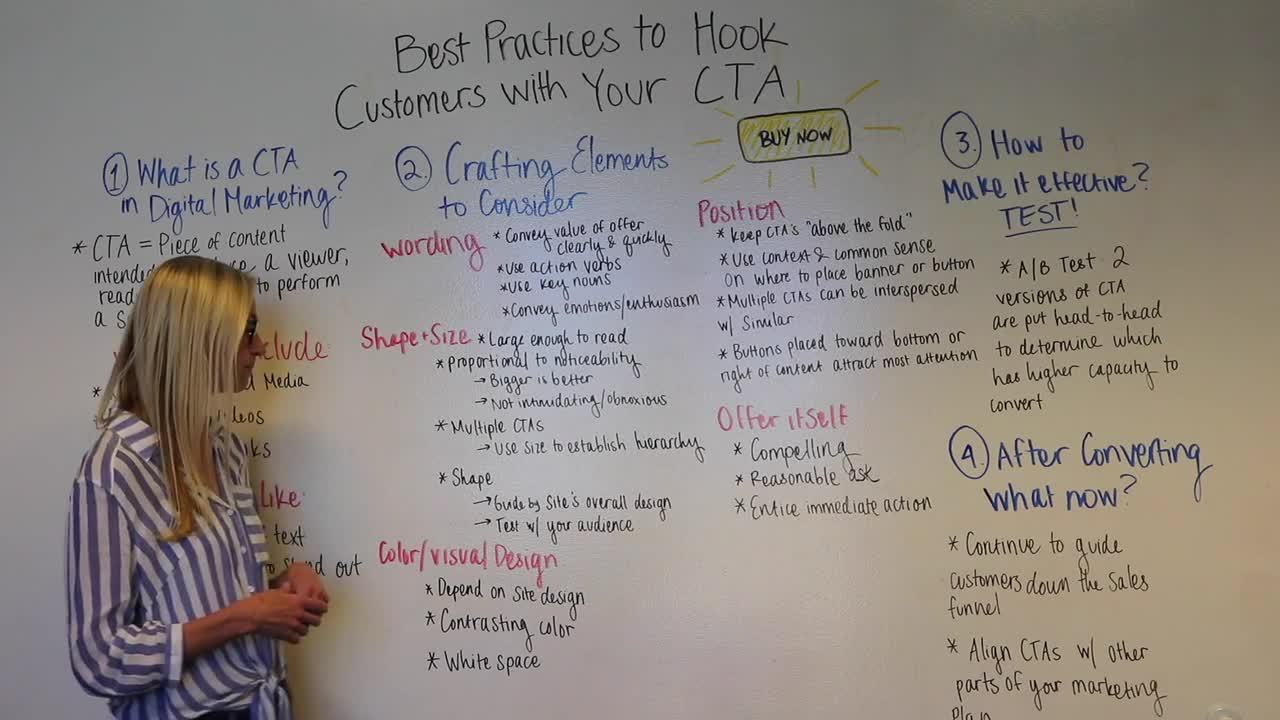 Best Practices to Hook
Customers with Your CTA
BUY NOW
1 What is a CTA
in Digital Marketing?
* CTA = Piece of content
a viewer,
to perform
a
Media
text
out
2. Crafting Elements
to Consider
Wording
* Convey value of offer
clearly & quickly
* Use action verbs
* Use key nouns
* Convey emotions/enthusiasm
Shape + Size
* Large enough to read
* Proportional to noticeability
→ Bigger is better
→ Not intimidating/obnoxious
* Multiple CTAs
→ Use size to establish hierarchy
* Shape
→ Guide by Site's overall design
→ Test w/ your audience
Color/Visual Design
* Depend on site design
* Contrasting color
* White space
Position
* Keep CTA's "above the fold"
* Use context & common sense
on where to place banner or button
* Multiple CTAs can be interspersed
w/ Similar
* Buttons placed toward bottom or
right of content attract most attention
Offer itself
* Compelling
* Reasonable ask
* Entice immediate action
3. How to
Make it effective?
TEST!
* A/B Test 2
versions of CTA
are put head-to-head
to determine which
has higher capacity to
convert
4. After Converting
What now?
* Continue to guide
customers down the sales
funnel
* Align CTAs w/ other
parts of your marketing
Plan